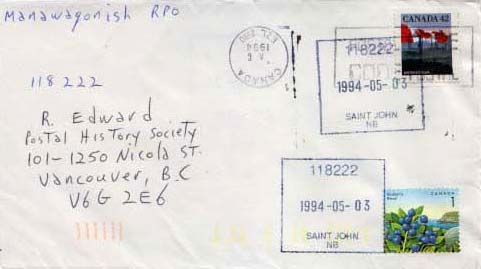 Manawagonish RPO
118222
R. Edward
Postal History Society
101-1250 Nicola ST.
Vancouver, B.C
V6G 2E6
CANADA
1994
CANADA 42
118222
1994-05-03
SAINT JOHN
NB
118222
1994-05-03
SAINT JOHN
NB
CANADA
1